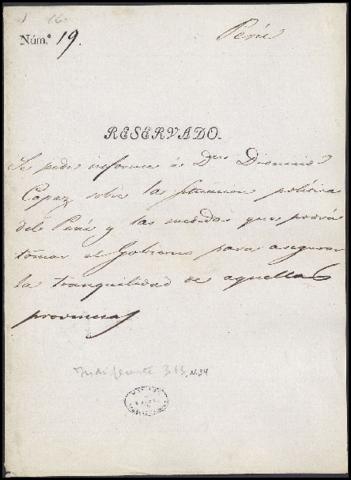 Núm.º 19.
Perú
RESERVADO.
Se pide informe á Dn Dionisio
Capaz sobre la situacion política
del Perú y las medidas que podrá
tomar el Gobierno para asegurar
la tranquilidad de aquellas
provincias
Indiferente 313, N.34